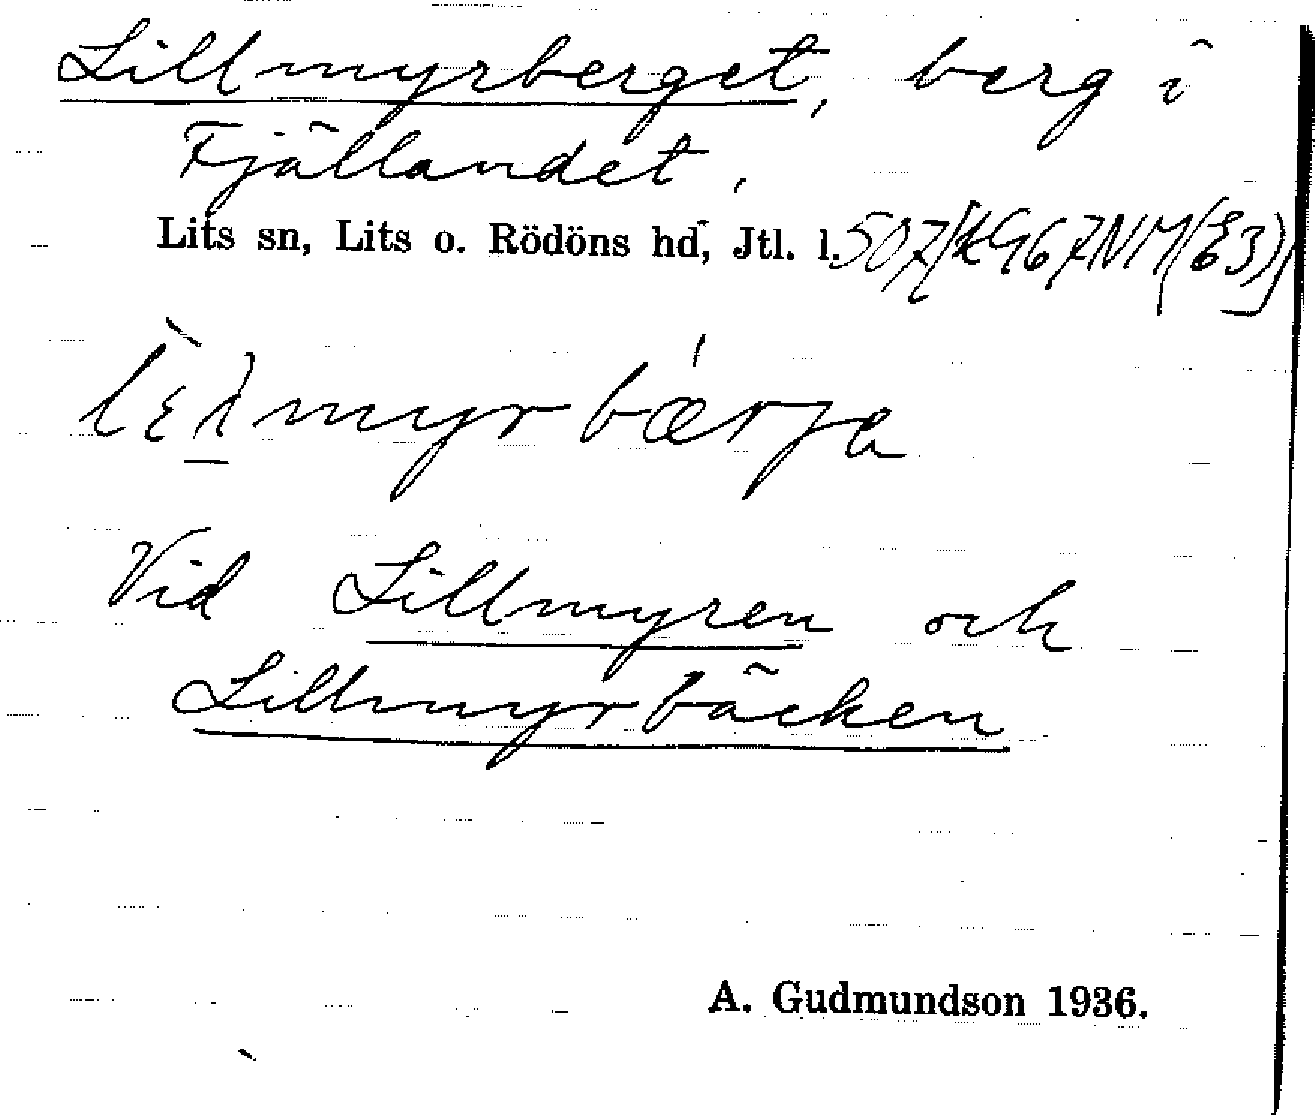 Lillmyrberget, berg i
Fjällandet.
Lits sn, Lits o. Rödöns hd, Jtl. l.
Vid Lillmyren och
Lillmyrbäcken
A. Gudmundson 1936.